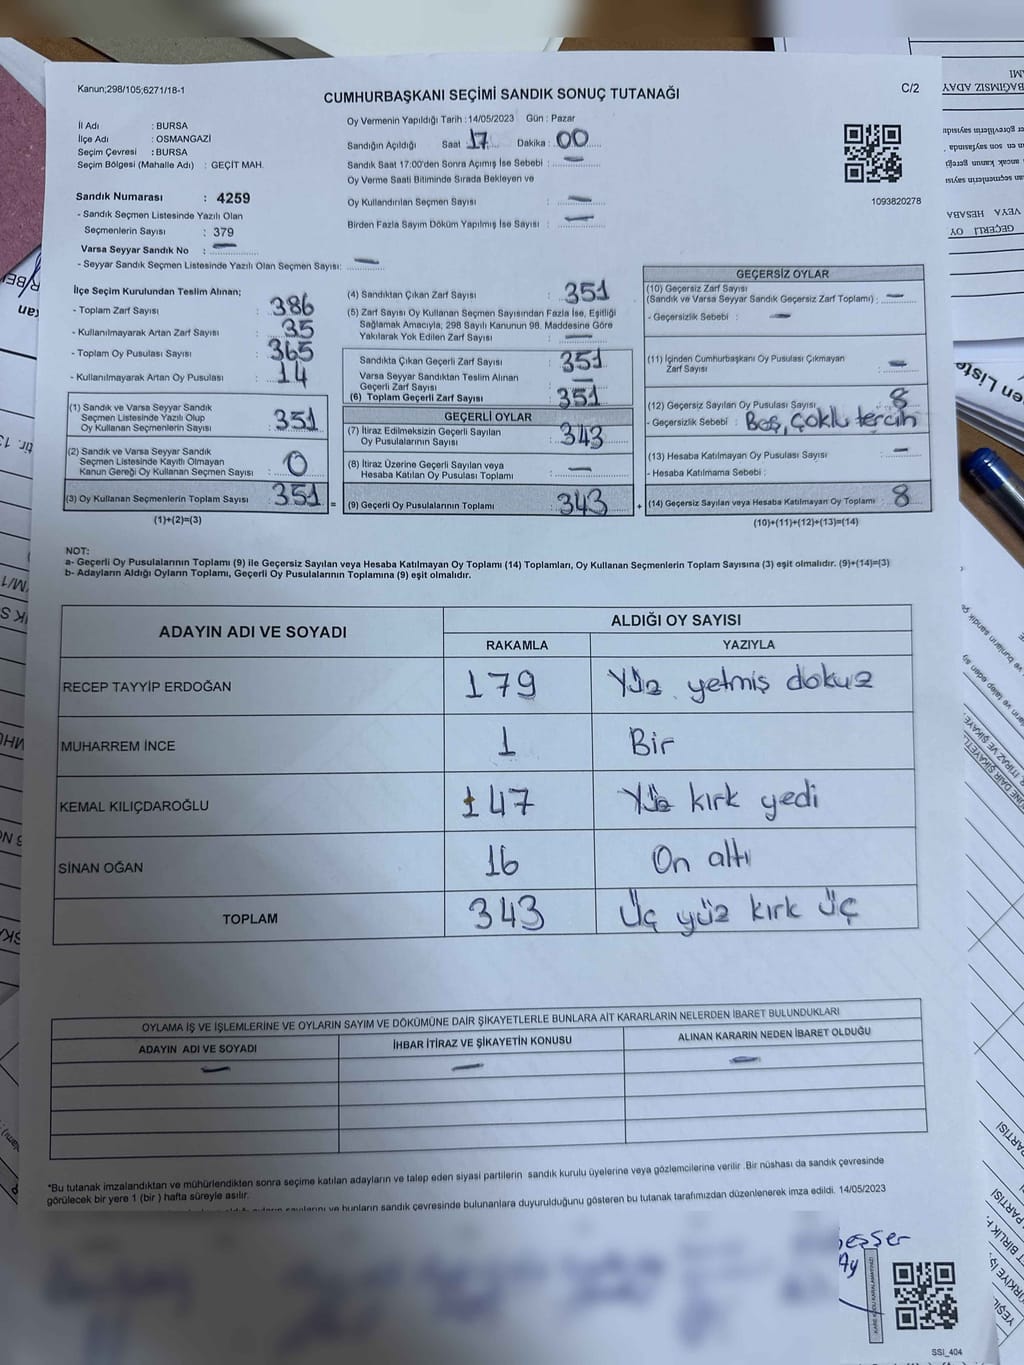 Kanun;298/105;6271/18-1
CUMHURBAŞKANI SEÇİMİ SANDIK SONUÇ TUTANAĞI
C/2
İl Adı : BURSA
İlçe Adı : OSMANGAZİ
Seçim Çevresi : BURSA
Seçim Bölgesi (Mahalle Adı) : GEÇİT MAH.
Sandık Numarası : 4259
- Sandık Seçmen Listesinde Yazılı Olan
Seçmenlerin Sayısı : 379
Varsa Seyyar Sandık No : —
- Seyyar Sandık Seçmen Listesinde Yazılı Olan Seçmen Sayısı: —
Oy Vermenin Yapıldığı Tarih : 14/05/2023 Gün : Pazar
Sandığın Açıldığı Saat 17 Dakika : 00
Sandık Saat 17:00'den Sonra Açımış İse Sebebi : —
Oy Verme Saati Bitiminde Sırada Bekleyen ve
Oy Kullandırılan Seçmen Sayısı : —
Birden Fazla Sayım Döküm Yapılmış İse Sayısı : —
1093820278
İlçe Seçim Kurulundan Teslim Alınan;
- Toplam Zarf Sayısı : 386
- Kullanılmayarak Artan Zarf Sayısı : 35
- Toplam Oy Pusulası Sayısı : 365
- Kullanılmayarak Artan Oy Pusulası : 14
(1) Sandık ve Varsa Seyyar Sandık
Seçmen Listesinde Yazılı Olup
Oy Kullanan Seçmenlerin Sayısı : 351
(2) Sandık ve Varsa Seyyar Sandık
Seçmen Listesinde Kayıtlı Olmayan
Kanun Gereği Oy Kullanan Seçmen Sayısı : 0
(3) Oy Kullanan Seçmenlerin Toplam Sayısı : 351
(1)+(2)=(3)
(4) Sandıktan Çıkan Zarf Sayısı : 351
(5) Zarf Sayısı Oy Kullanan Seçmen Sayısından Fazla İse, Eşitliği
Sağlamak Amacıyla; 298 Sayılı Kanunun 98. Maddesine Göre
Yakılarak Yok Edilen Zarf Sayısı : —
Sandıkta Çıkan Geçerli Zarf Sayısı : 351
Varsa Seyyar Sandıktan Teslim Alınan
Geçerli Zarf Sayısı : —
(6) Toplam Geçerli Zarf Sayısı : 351
GEÇERLİ OYLAR
(7) İtiraz Edilmeksizin Geçerli Sayılan
Oy Pusulalarının Sayısı : 343
(8) İtiraz Üzerine Geçerli Sayılan veya
Hesaba Katılan Oy Pusulası Toplamı : —
= (9) Geçerli Oy Pusulalarının Toplamı : 343
GEÇERSİZ OYLAR
(10) Geçersiz Zarf Sayısı
(Sandık ve Varsa Seyyar Sandık Geçersiz Zarf Toplamı) : —
- Geçersizlik Sebebi : —
(11) İçinden Cumhurbaşkanı Oy Pusulası Çıkmayan
Zarf Sayısı : —
(12) Geçersiz Sayılan Oy Pusulası Sayısı : 8
- Geçersizlik Sebebi : Boş, çoklu tercih
(13) Hesaba Katılmayan Oy Pusulası Sayısı : —
- Hesaba Katılmama Sebebi :
+ (14) Geçersiz Sayılan veya Hesaba Katılmayan Oy Toplamı : 8
(10)+(11)+(12)+(13)=(14)
NOT:
a- Geçerli Oy Pusulalarının Toplamı (9) ile Geçersiz Sayılan veya Hesaba Katılmayan Oy Toplamı (14) Toplamları, Oy Kullanan Seçmenlerin Toplam Sayısına (3) eşit olmalıdır. (9)+(14)=(3)
b- Adayların Aldığı Oyların Toplamı, Geçerli Oy Pusulalarının Toplamına (9) eşit olmalıdır.
ADAYIN ADI VE SOYADI
ALDIĞI OY SAYISI
RAKAMLA YAZIYLA
RECEP TAYYİP ERDOĞAN 179 Yüz yetmiş dokuz
MUHARREM İNCE 1 Bir
KEMAL KILIÇDAROĞLU 147 Yüz kırk yedi
SİNAN OĞAN 16 On altı
TOPLAM 343 Üç yüz kırk üç
OYLAMA İŞ VE İŞLEMLERİNE VE OYLARIN SAYIM VE DÖKÜMÜNE DAİR ŞİKAYETLERLE BUNLARA AİT KARARLARIN NELERDEN İBARET BULUNDUKLARI
ADAYIN ADI VE SOYADI İHBAR İTİRAZ VE ŞİKAYETİN KONUSU ALINAN KARARIN NEDEN İBARET OLDUĞU
— — —
*Bu tutanak imzalandıktan ve mühürlendikten sonra seçime katılan adayların ve talep eden siyasi partilerin sandık kurulu üyelerine veya gözlemcilerine verilir .Bir nüshası da sandık çevresinde
görülecek bir yere 1 (bir ) hafta süreyle asılır.
sayılarını ve bunların sandık çevresinde bulunanlara duyurulduğunu gösteren bu tutanak tarafımızdan düzenlenerek imza edildi. 14/05/2023
SSI_404